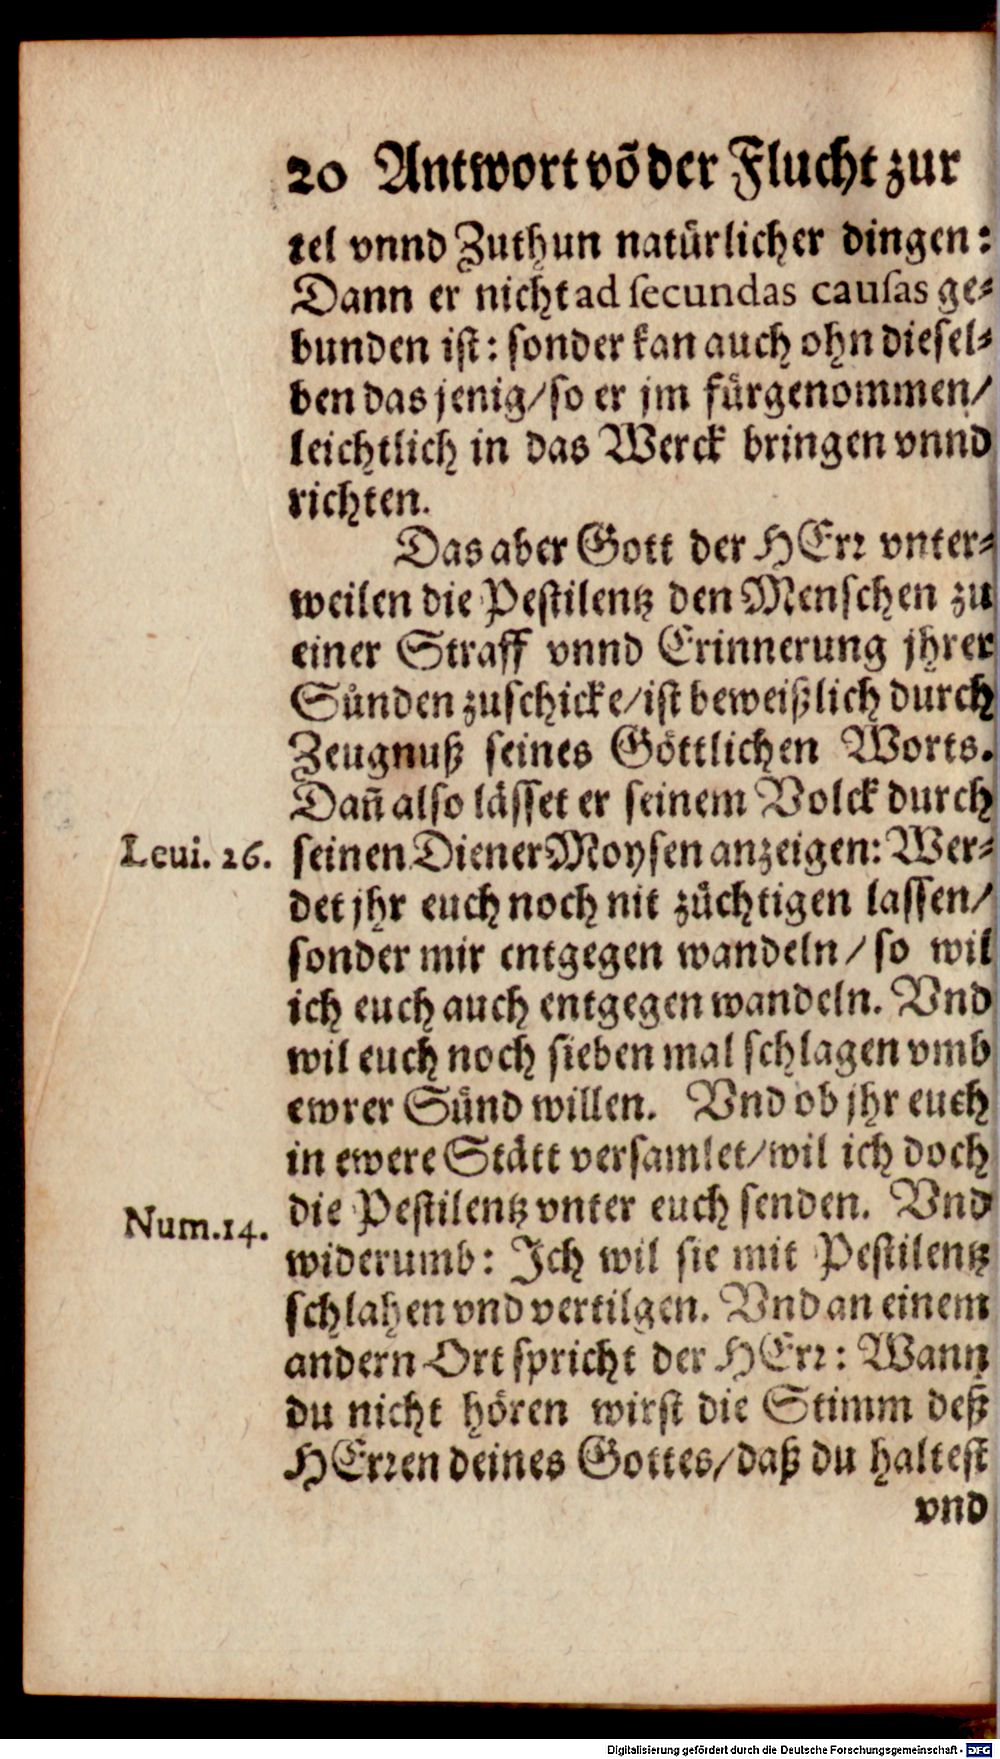 20 Antwort võ der Flucht zur
tel vnnd Zuthun natürlicher dingen:
Dann er nicht ad secundas causas ge⸗
bunden ist: sonder kan auch ohn diesel⸗
ben das jenig/ so er jm fürgenommen/
leichtlich in das Werck bringen vnnd
richten.
Das aber Gott der HErꝛ vnter⸗
weilen die Pestilentz den Menschen zu
einer Straff vnnd Erinnerung jhrer
Sünden zuschicke/ ist beweißlich durch
Zeugnuß seines Göttlichen Worts.
Dañ also lässet er seinem Volck durch
Leui. 26. seinen Diener Moysen anzeigen: Wer⸗
det jhr euch noch nit züchtigen lassen/
sonder mir entgegen wandeln/ so wil
ich euch auch entgegen wandeln. Vnd
wil euch noch sieben mal schlagen vmb
ewrer Sünd willen. Vnd ob jhr euch
in ewere Stätt versamlet/ wil ich doch
die Pestilentz vnter euch senden. Vnd
Num. 14. widerumb: Ich wil sie mit Pestilentz
schlahen vnd vertilgen. Vnd an einem
andern Ort spricht der HErꝛ: Wann
du nicht hören wirst die Stimm deß
HErꝛen deines Gottes/ daß du haltest
vnd
Digitalisierung gefördert durch die Deutsche Forschungsgemeinschaft - DFG